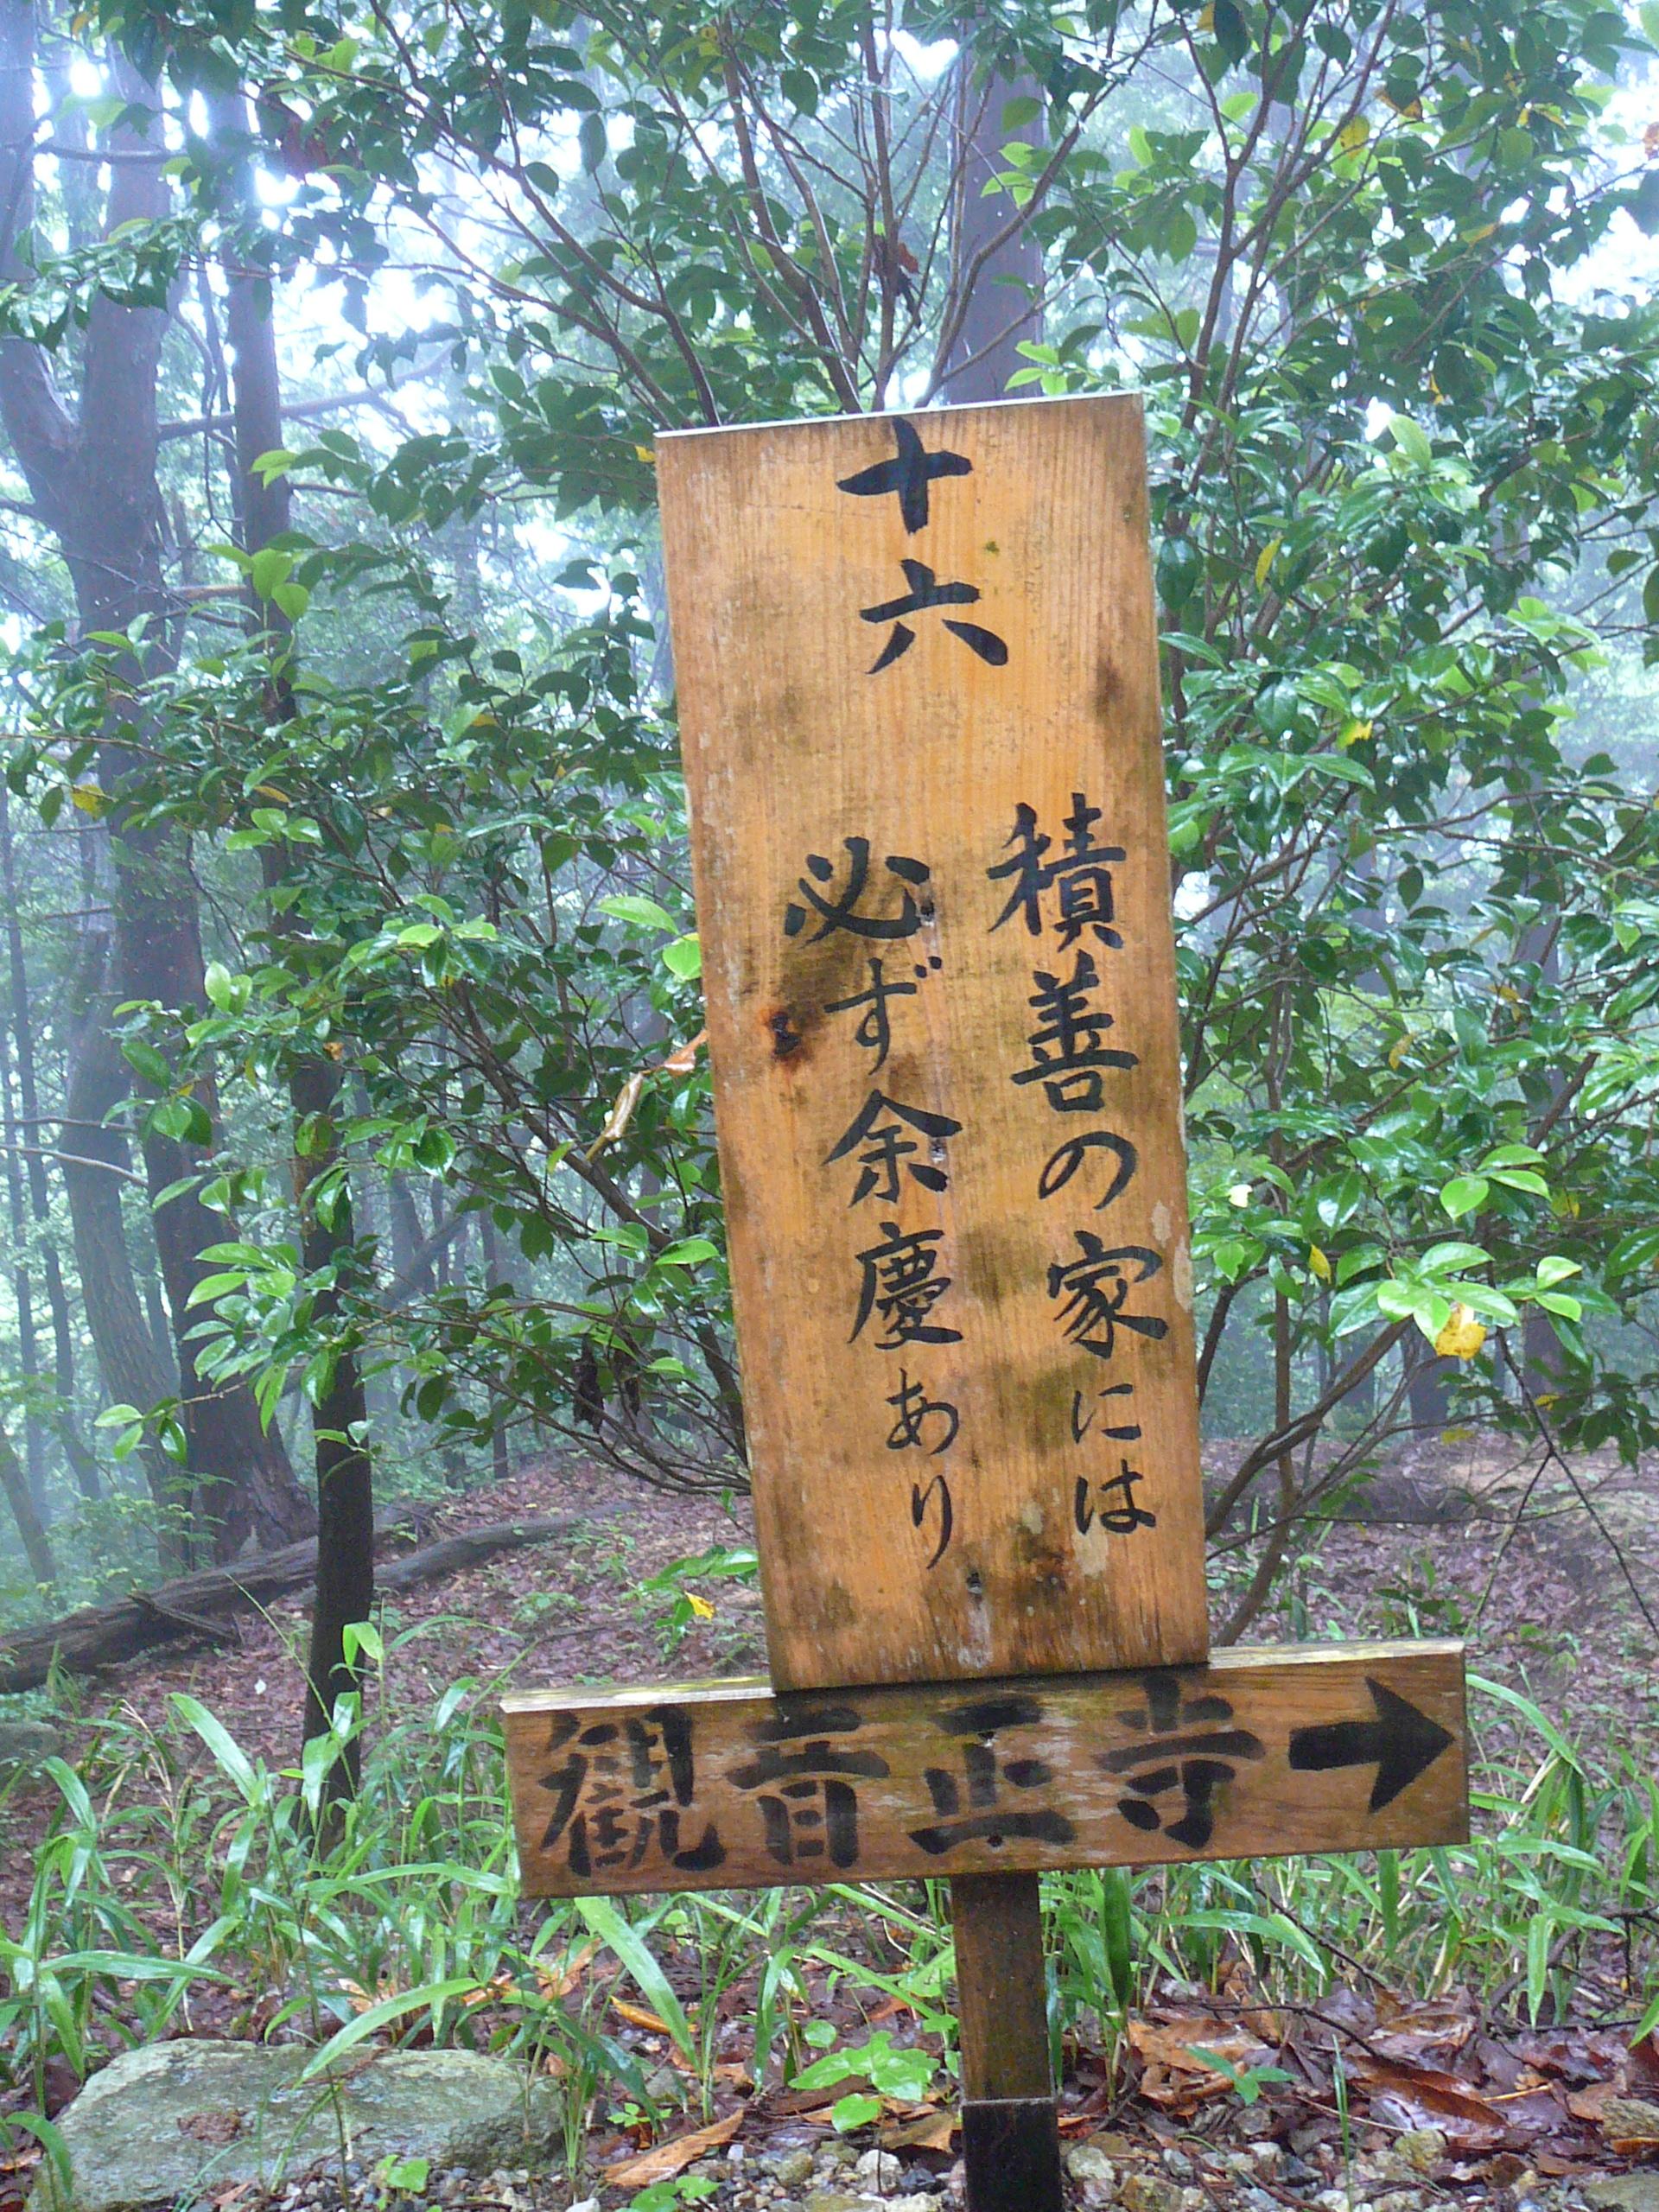 十六
積善の家には
必ず余慶あり
観音正寺→